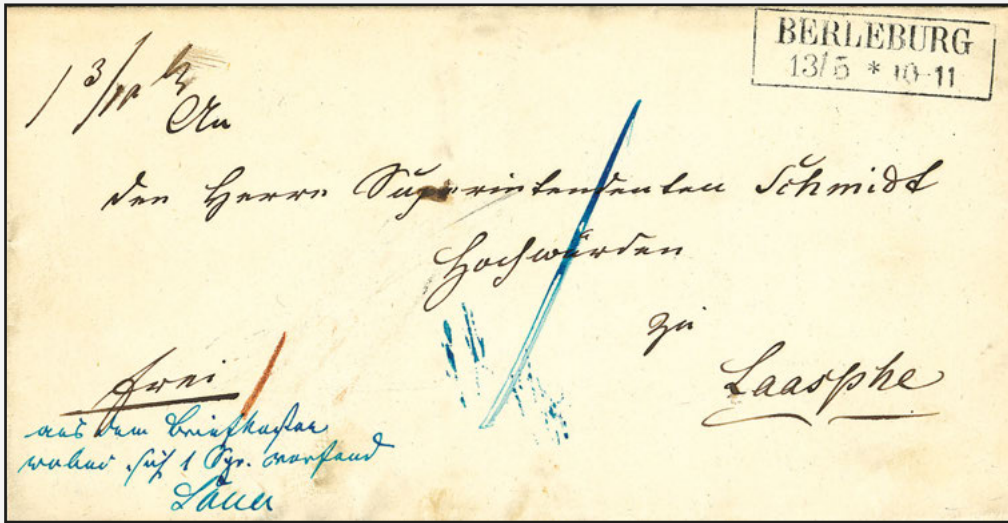 BERLEBURG
13/5 * 10-11
An
den Herrn Superintendenten Schmidt
Hochwürden
zu
Laasphe
frei
aus dem Briefkasten
wobei sich 1 Sgr. vorfand